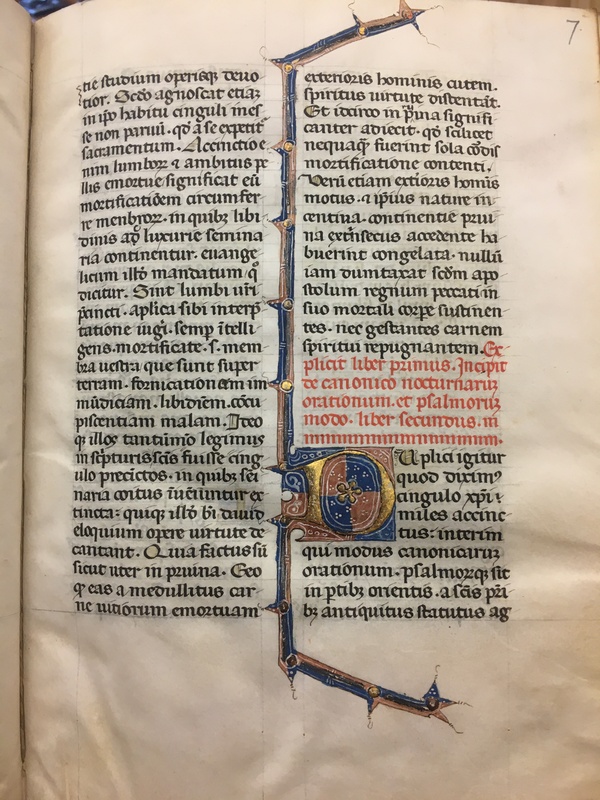 7
tie studium operisq; deuo
tior. Scdo agnoscat etiaz
in ipo habitu cinguli ines
se non paruū. qd a se expetit
sacramentum. Accinctio e
nim lumboꝝ & ambitus pe
llis emortue significat eū
mortificationem circumfer
re menbroꝝ. in quibz libi
dinis ac luxurie semina
ria continentur. euange
licum illd mandatum q
dicitur. Sint lumbi uri
pancti. aplica sibi interp
tatione iugi. semp itelli
gens. mortificate .s. mem
bra uestra que sunt super
terram. fornicationem im
mūdiciam. libidinem. cōcu
piscentiam malam. Ideo
q illos tantūmo legimus
in scpturis scās fuisse cing
ulo precictos. in quibz semi
naria coitus iueniuntur ex
tincta: quiqz illd bi dauid
eloquium opere uirtute de
cantant. Quia factus sū
sicut uter in pruina. Eeo
q eas a medullitus car
ne uitiorum emortuam
exterioris hominis cutem.
spiritus uirtute distentāt.
Et idcirco in pruina signifi
canter adiecit. qd scilicet
nequaq fuerint sola cordis
mortificatione contenti.
Verū etiam extioris hominis
motus. & ipius nature in
centiua. continentie prui
na extrinsecus accedente ha
buerint congelata. nullū
iam dumtaxat scdm apo
stolum regnum peccati in
suo mortali corpe sustinen
tes. nec gestantes carnem
spiritui repugnantem. Ex
plicit liber primus. Incipit
de canonico nocturnaruz
orationum. et psalmoruz
modo. liber secundus. in
Duplici igitur
quod diximꝰ
cingulo xpi
miles accinc
tus: interim
qui modus canonicaruz
orationum. psalmorqz sit
in ptibz orientis. a scis patri
bz antiquitus statutus ag